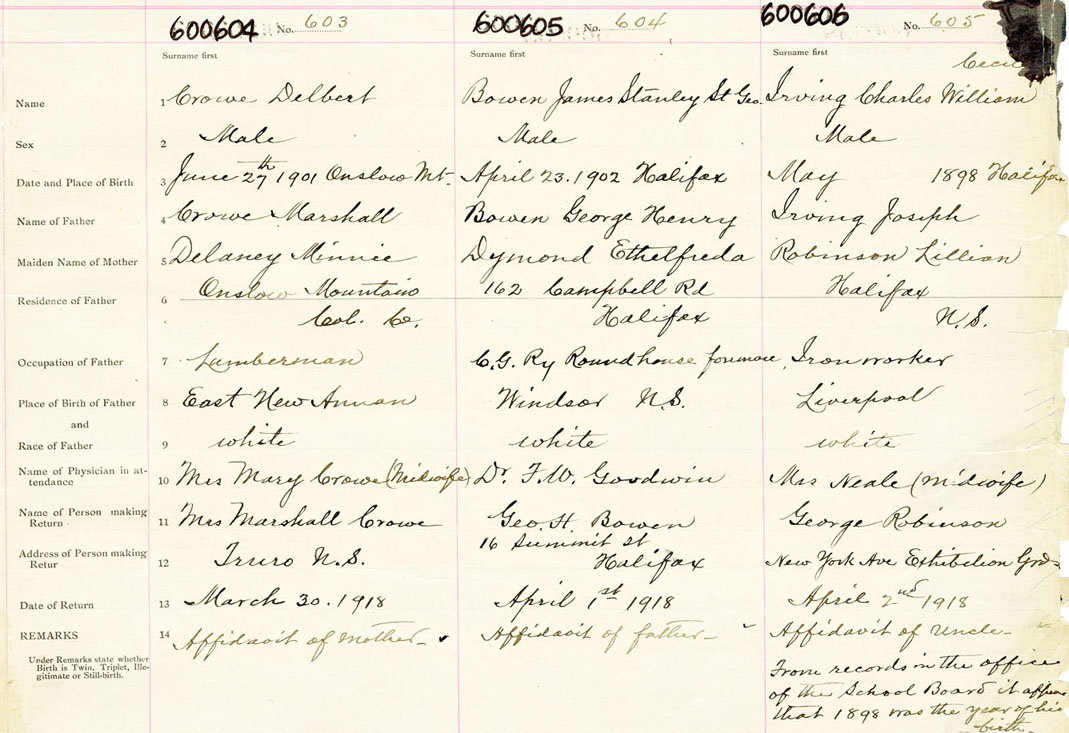 600604 No. 603 600605 No. 604 600606 No. 605
Surname first Surname first Surname first
Cecil
Name 1 Crowe Delbert Bowen James Stanley St Geo. Irving Charles William
Sex 2 Male Male Male
Date and Place of Birth 3 June 27th 1901 Onslow Mt. April 23. 1902 Halifax May 1898 Halifax
Name of Father 4 Crowe Marshall Bowen George Henry Irving Joseph
Maiden Name of Mother 5 Delaney Minnie Dymond Ethelfreda Robinson Lillian
Residence of Father 6 Onslow Mountain 162 Campbell Rd Halifax
Col. Co. Halifax N.S.
Occupation of Father 7 Lumberman C.G. Ry Roundhouse Ironworker
Place of Birth of Father 8 East New Annan Windsor N.S. Liverpool
and
Race of Father 9 white white white
Name of Physician in at-
tendance 10 Mrs Mary Crowe (Midwife) Dr. F.W. Goodwin Mrs Neale (midwife)
Name of Person making
Return 11 Mrs Marshall Crowe Geo. H. Bowen George Robinson
16 Summit St
Address of Person making
Retur 12 Truro N.S. Halifax New York Ave Exhibition Grds
Date of Return 13 March 30. 1918 April 1st 1918 April 2nd 1918
REMARKS 14 Affidavit of Mother Affidavit of father Affidavit of Uncle
Under Remarks state whether
Birth is Twin, Triplet, Ille-
gitimate or Still-birth.
From records in the office
of the School Board it appears
that 1898 was the year of his
birth